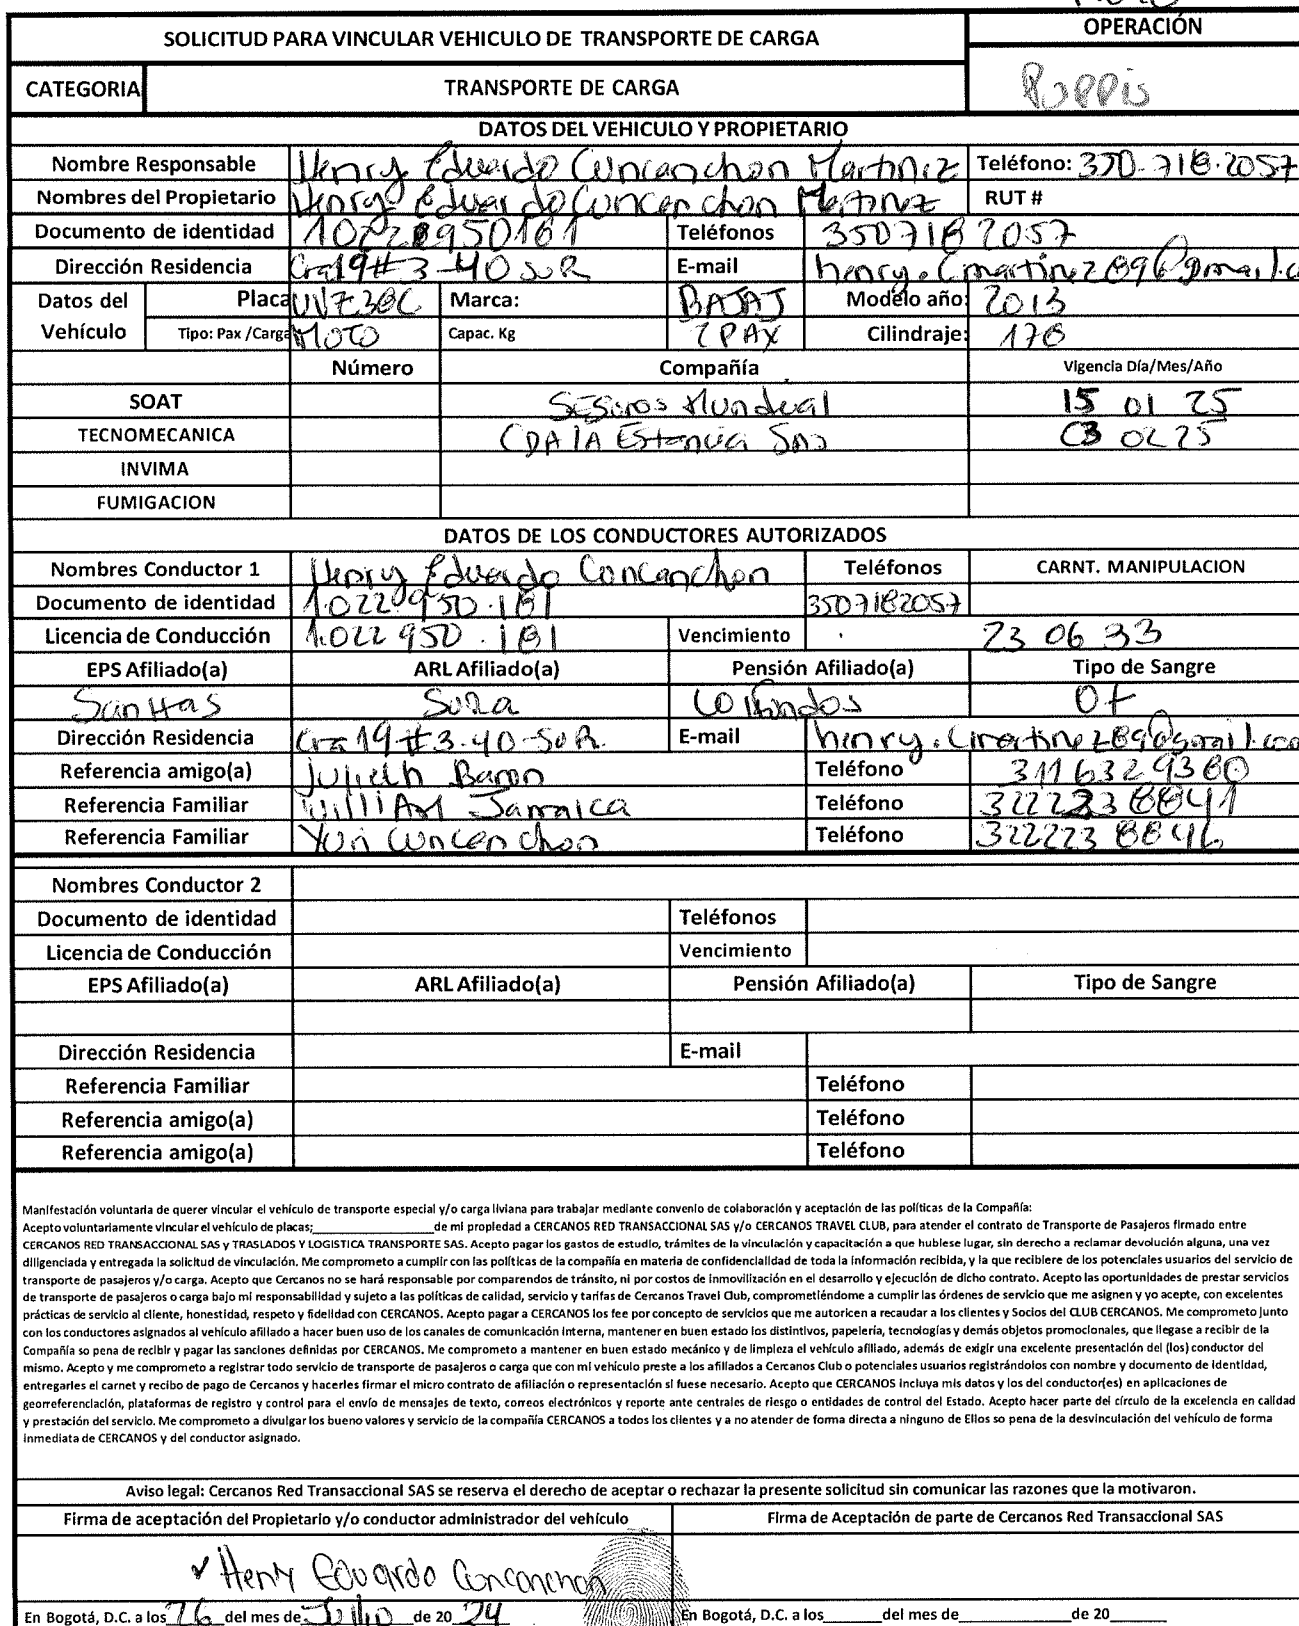 SOLICITUD PARA VINCULAR VEHICULO DE TRANSPORTE DE CARGA
OPERACIÓN
CATEGORIA TRANSPORTE DE CARGA
DATOS DEL VEHICULO Y PROPIETARIO
Nombre Responsable Henry Eduardo Cuncanchon Martinez Teléfono: 350-718-2057
Nombres del Propietario Henry Eduardo Cuncanchon Martinez RUT #
Documento de identidad Teléfonos 3507182057
Dirección Residencia Cra19#3-40 SUR E-mail henry.cmartinez89@gmail.co
Datos del Vehículo Placa UVZ38C Marca: BAJAJ Modelo año: 2013
Tipo: Pax /Carga MOTO Capac. Kg 2 PAX Cilindraje: 178
Número Compañía Vigencia Día/Mes/Año
SOAT Seguros Mundual 15 01 25
TECNOMECANICA CDA LA Estancia SAS 03 02 25
INVIMA
FUMIGACION
DATOS DE LOS CONDUCTORES AUTORIZADOS
Nombres Conductor 1 Henry Eduardo Concanchon Teléfonos CARNT. MANIPULACION
Documento de identidad 1.022.950.181 3507182057
Licencia de Conducción 1.022 950.181 Vencimiento 23 06 33
EPS Afiliado(a) ARL Afiliado(a) Pensión Afiliado(a) Tipo de Sangre
Sanitas Sura Colfondos O+
Dirección Residencia Cra 19 #3-40-SUR. E-mail henry.cmartinez89@gmail.com
Referencia amigo(a) Julieth Baron Teléfono 3116329380
Referencia Familiar WilliAM Jamaica Teléfono 3222238841
Referencia Familiar Yuri Cuncanchon Teléfono 3222238846
Nombres Conductor 2
Documento de identidad Teléfonos
Licencia de Conducción Vencimiento
EPS Afiliado(a) ARL Afiliado(a) Pensión Afiliado(a) Tipo de Sangre
Dirección Residencia E-mail
Referencia Familiar Teléfono
Referencia amigo(a) Teléfono
Referencia amigo(a) Teléfono
Manifestación voluntaria de querer vincular el vehículo de transporte especial y/o carga liviana para trabajar mediante convenio de colaboración y aceptación de las políticas de la Compañía:
Acepto voluntariamente vincular el vehículo de placas;____________________de mi propledad a CERCANOS RED TRANSACCIONAL SAS y/o CERCANOS TRAVEL CLUB, para atender el contrato de Transporte de Pasajeros firmado entre
CERCANOS RED TRANSACCIONAL SAS y TRASLADOS Y LOGISTICA TRANSPORTE SAS. Acepto pagar los gastos de estudio, trámites de la vinculación y capacitación a que hubiese lugar, sin derecho a reclamar devolución alguna, una vez
diligenciada y entregada la solicitud de vinculación. Me comprometo a cumplir con las políticas de la compañía en materia de confidencialidad de toda la información recibida, y la que recibiere de los potenciales usuarios del servicio de
transporte de pasajeros y/o carga. Acepto que Cercanos no se hará responsable por comparendos de tránsito, ni por costos de inmovilización en el desarrollo y ejecución de dicho contrato. Acepto las oportunidades de prestar servicios
de transporte de pasajeros o carga bajo mi responsabilidad y sujeto a las políticas de calidad, servicio y tarifas de Cercanos Travel Club, comprometiéndome a cumplir las órdenes de servicio que me asignen y yo acepte, con excelentes
prácticas de servicio al cliente, honestidad, respeto y fidelidad con CERCANOS. Acepto pagar a CERCANOS los fee por concepto de servicios que me autoricen a recaudar a los clientes y Socios del CLUB CERCANOS. Me comprometo junto
con los conductores asignados al vehículo afiliado a hacer buen uso de los canales de comunicación interna, mantener en buen estado los distintivos, papelería, tecnologías y demás objetos promocionales, que llegase a recibir de la
Compañía so pena de recibir y pagar las sanciones definidas por CERCANOS. Me comprometo a mantener en buen estado mecánico y de limpieza el vehículo afiliado, además de exigir una excelente presentación del (los) conductor del
mismo. Acepto y me comprometo a registrar todo servicio de transporte de pasajeros o carga que con mi vehículo preste a los afiliados a Cercanos Club o potenciales usuarios registrándolos con nombre y documento de identidad,
entregarles el carnet y recibo de pago de Cercanos y hacerles firmar el micro contrato de afiliación o representación si fuese necesario. Acepto que CERCANOS incluya mis datos y los del conductor(es) en aplicaciones de
georreferenciación, plataformas de registro y control para el envío de mensajes de texto, correos electrónicos y reporte ante centrales de riesgo o entidades de control del Estado. Acepto hacer parte del círculo de la excelencia en calidad
y prestación del servicio. Me comprometo a divulgar los bueno valores y servicio de la compañía CERCANOS a todos los clientes y a no atender de forma directa a ninguno de Ellos so pena de la desvinculación del vehículo de forma
inmediata de CERCANOS y del conductor asignado.
Aviso legal: Cercanos Red Transaccional SAS se reserva el derecho de aceptar o rechazar la presente solicitud sin comunicar las razones que la motivaron.
Firma de aceptación del Propietario y/o conductor administrador del vehículo Firma de Aceptación de parte de Cercanos Red Transaccional SAS
Henry Eduardo Conconchon
En Bogotá, D.C. a los 26 del mes de Julio de 20 24 En Bogotá, D.C. a los_______del mes de______________de 20_______